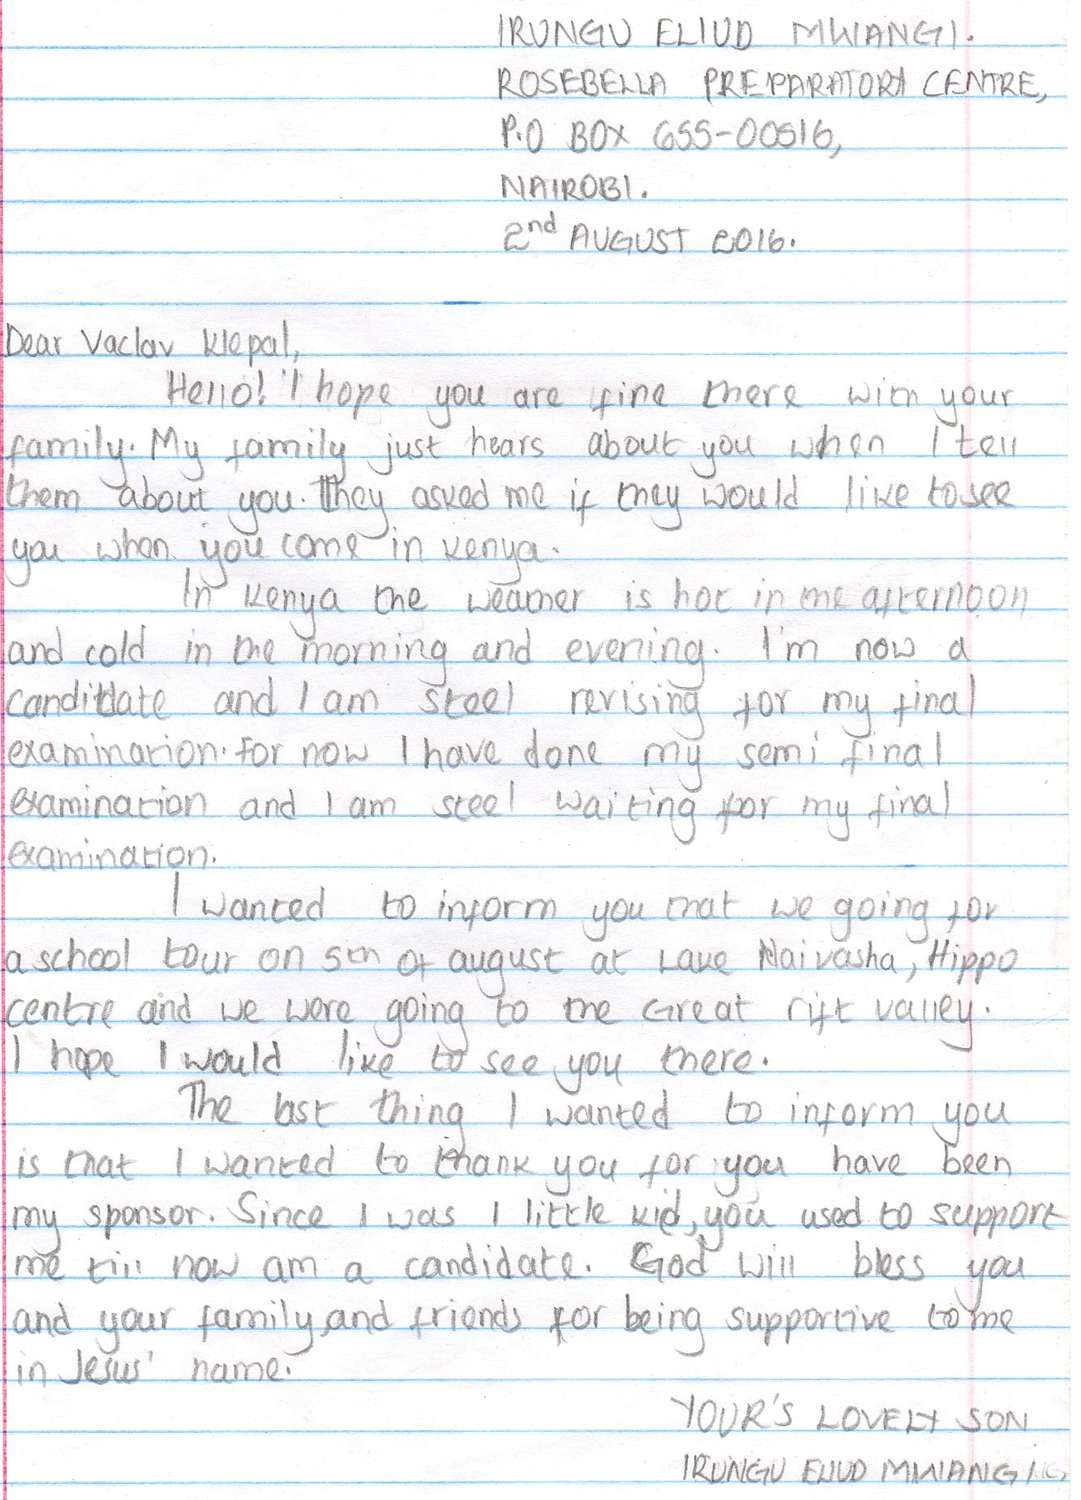 IRUNGU ELIUD MWANGI.
ROSEBELLA PREPARATORY CENTRE,
P.O BOX 655-00516,
NAIROBI.
2nd AUGUST 2016.
Dear Vaclav Klepal,
Hello! I hope you are fine there with your
family. My family just hears about you when I tell
them about you. They asked me if they would like to see
you when you come in Kenya.
In Kenya the weather is hot in the afternoon
and cold in the morning and evening. I'm now a
candidate and I am steel revising for my final
examination. For now I have done my semi final
examination and I am steel waiting for my final
examination.
I wanted to inform you that we going for
a school tour on 5th of august at Lake Naivasha, Hippo
centre and we were going to the Great rift valley.
I hope I would like to see you there.
The last thing I wanted to inform you
is that I wanted to thank you for you have been
my sponsor. Since I was I little kid, you used to support
me till now am a candidate. God will bless you
and your family, and friends for being supportive to me
in Jesus' name.
YOUR'S LOVELY SON
IRUNGU ELIUD MWANGI